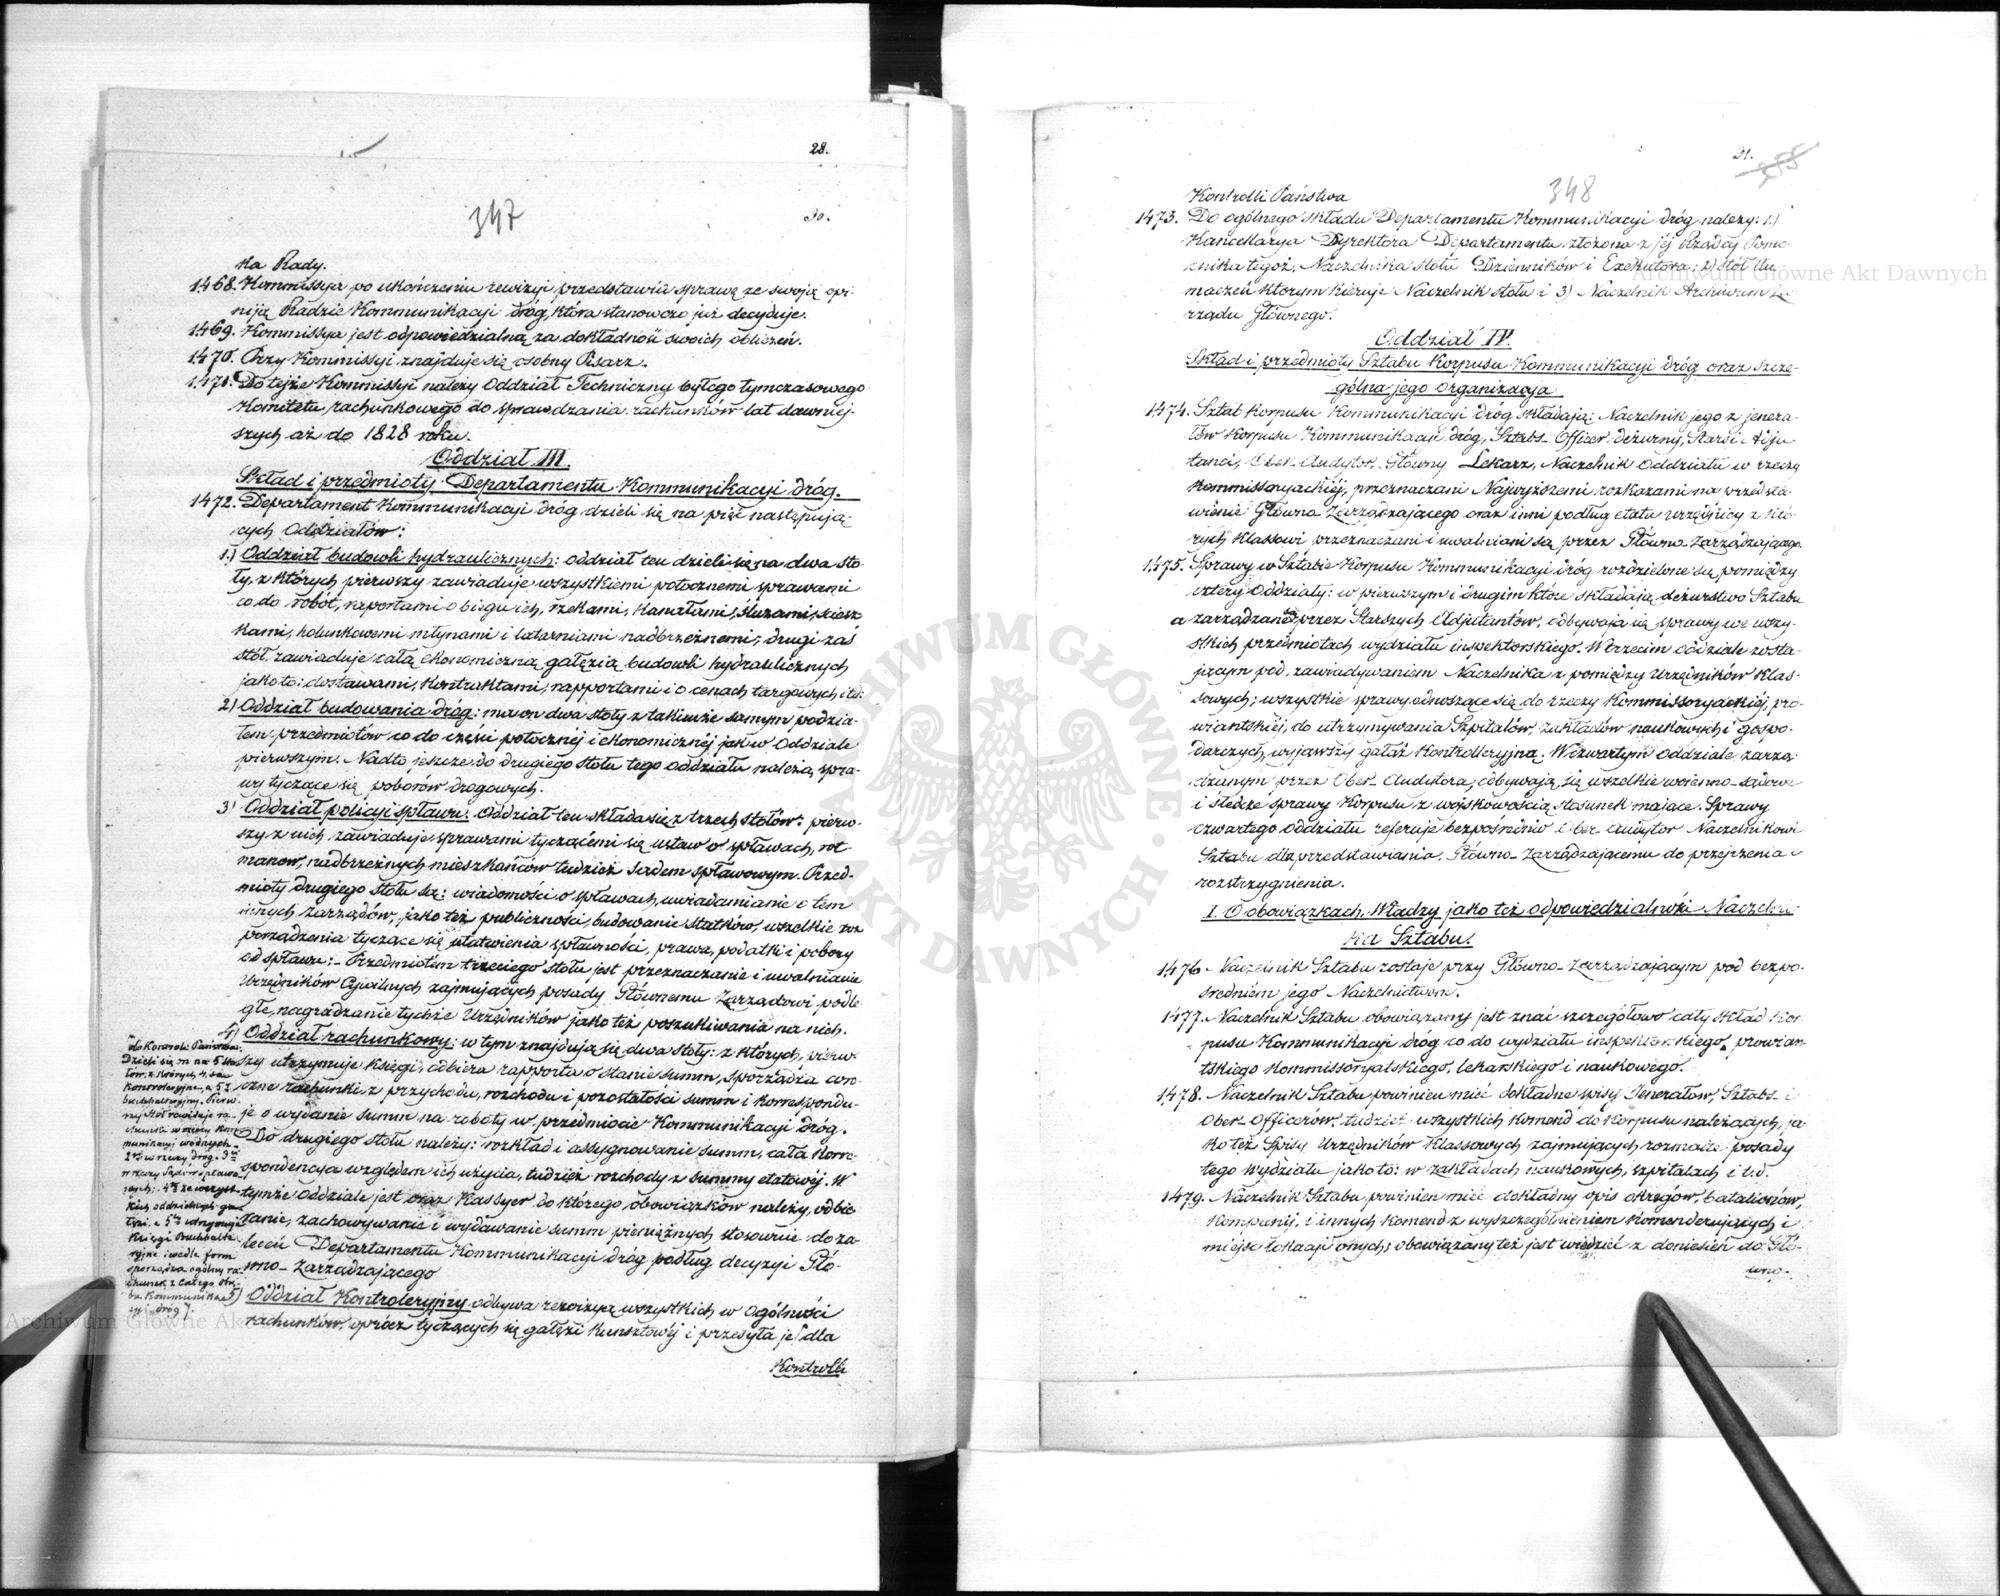 28.
347
30.
ka Rady.
1468. Kommissya po ukończeniu rewizyi przedstawia sprawę ze swoją opi-
niją Radzie Kommunikacyi dróg, która stanowczo już decyduje.
1469. Kommissya jest odpowiedzialną za dokładność swoich obliczeń.
1470. Przy Kommissyi znajduje się osobny Pisarz.
1471. Do tejże Kommissyi należy Oddział Techniczny byłego tymczasowego
Komitetu rachunkowego do sprawdzania rachunków lat dawniej-
szych aż do 1828 roku.
Oddział III.
Skład i przedmioty Departamentu Kommunikacyi dróg.
1472. Departament Kommunikacyi dróg dzieli się na pięć następują-
cych Oddziałów:
1.) Oddział budowli hydraulicznych: oddział ten dzieli się na dwa sto-
ły, z których pierwszy zawiaduje wszystkiemi potocznemi sprawami
co do robót, raportami o biegu ich, rzekami, kanałami, śluzami,
kami, holunkowemi młynami i latarniami nadbrzeżnemi; drugi zaś
stół zawiaduje całą ekonomiczną gałęzią budowli hydraulicznych
jako to: dostawami, kontraktami, rapportami i o cenach targowych itd:
2) Oddział budowania dróg: ma on dwa stoły z takimże samym podzia-
łem przedmiotów co do części potocznéj i ekonomicznéj jak w Oddziale
pierwszym. Nadto jeszcze do drugiego stołu tego oddziału należą spra-
wy tyczące się poborów drogowych.
3) Oddział policyi spławu. Oddział ten składa się z trzech stołów: pierw-
szy z nich zawiaduje sprawami tyczącémi się ustaw o spławach, rot-
manów, nadbrzeżnych mieszkańców tudzież Sądem spławowym. Przed-
mioty drugiego stołu są: wiadomości o spławach, uwiadamianie o tém
innych Zarządów, jako też publiczności, budowanie statków, wszelkie roz
porządzenia tyczące się ułatwienia spławności, prawa, podatki i pobory
od spławu: – Przedmiotem trzeciego stołu jest przeznaczanie i uwalnianie
Urzędników Cywilnych zajmujących posady Głównemu Zarządowi podle
głe, nagradzanie tychże Urzędników jako też poszukiwania na nich.
4) Oddział rachunkowy: w tym znajdują się dwa stoły: z których, pierw-
szy utrzymuje Księgi, odbiera rapporta o stanie summ, sporządza co ro-
czne rachunki z przychodu, rozchodu i pozostałości summ i korrespondu-
je o wydanie summ na roboty w przedmiocie Kommunikacyi dróg.
Do drugiego stołu należy: rozkład i assygnowanie summ, cała korre-
spondencya względem ich użycia, tudzież rozchody z summy etatowéj. W
tymże Oddziale jest oraz Kassyer do którego obowiązków należy, odbie
ranie, zachowywanie i wydawanie summ pieniężnych stosownie do za-
leceń Departamentu Kommunikacyi dróg podług decyzyi Głó-
wno-Zarządzającego
5) Oddział Kontroleryjny odbywa rewizyą wszystkich w ogólności
rachunków, oprócz tyczących się gałęzi kunsztowéj i przesyła je dla
Kontrolli
do Kontroli Państwa.
Dzieli się on na 5 sto
łów, z których 4. są
kontroleryjne, a 5ty
buchhalteryjny. Pierw
szy stół rewiduje ra-
chunki w rzeczy kom
munikacyi wodnych
2gi w rzeczy dróg. 3ci
w rzeczy Sądów spławo
wych; 4ty ze wszyst-
kich oddzielnych ga
łęzi. a 5ty utrzymuje
Księgi Buchhalte
ryjne i wedle form
sporządza ogólny ra
chunek z całego obr.
Kommunika
cyi dróg).
31.
348
Kontrolli Państwa
1473. Do ogólnego składu Departamentu Kommunikacyi dróg należy: 1.)
Kancellarya Dyrektora Departamentu złożona z jéj Rządcy Pomo
cnika tegoż, Naczelnika stołu Dzienników i Exekutora; 2) Stół tłu
maczeń którym kieruje Naczelnik stołu i 3) Naczelnik Archiwum Za
rządu Głównego.
Oddział IV.
Skład i przedmioty Sztabu Korpusu Kommunikacyi dróg oraz szcze-
gólna jego organizacja
1474. Sztab Korpusu Kommunikacyi dróg składają: Naczelnik jego z jenera-
łów Korpusu Kommunikacyi dróg, Sztabs-Officer dézurny, Starsi Adju
tanci, Ober-Audytor, Główny Lekarz, Naczelnik Oddziału w rzeczy
Kommissoryackiéj, przeznaczani Najwyższemi rozkazami na przedsta-
wienie Główno Zarządzającego oraz inni podług etatu Urzędnicy z któ-
rych klassowi przeznaczani i uwalniani są przez Główno-Zarządzającego.
1475. Sprawy w Sztabie Korpusu Kommunikacyi dróg rozdzielone są pomiędzy
cztery Oddziały: w pierwszym i drugim które składają deżurstwo Sztabu
a zarządzane są przez Starszych Adjutantów, odbywają się sprawy we wszy-
stkich przedmiotach wydziału inspektorskiego. W trzecim oddziale zosta-
jącym pod zawiadywaniem Naczelnika z pomiędzy Urzędników Klas-
sowych; wszystkie sprawy odnoszące się do rzeczy Kommissoryackiéj, pro-
wiantskiéj, do utrzymywania Szpitalów, zakładów naukowych i gospo-
darczych, wyjąwszy gałąź kontrolleryjną. W czwartym Oddziale zarzą-
dzanym przez Ober-Audytora, odbywają się wszelkie wojenno-sądowe
i śledcze sprawy Korpusu z wojskowością stosunek mające. Sprawy
czwartego oddziału referuje bezpośrednio Ober Audytor Naczelnikowi
Sztabu dla przedstawiania, Główno-Zarządzającemu do przejrzenia i
rozstrzygnienia.
I. O obowiązkach, Władzy jako też odpowiedzialności Naczelni-
ka Sztabu.
1476 Naczelnik Sztabu zostaje przy Główno-Zarządzającym pod bezpo-
średniém jego Naczelnictwem.
1477. Naczelnik Sztabu obowiązany jest znać szczegółowo cały skład Kor-
pusu Kommunikacyi dróg co do wydziału inspektorskiego, prowian-
tskiego kommissoryatskiego, lekarskiego i naukowego.
1478. Naczelnik Sztabu powinien mieć dokładne spisy Jenerałów, Sztabs- i
Ober-Officerów, tudzież wszystkich komend do Korpusu należących, ja
ko też Spisy Urzędników Klassowych zajmujących rozmaite posady
tego wydziału jako to: w zakładach naukowych, szpitalach i t.d.
1479. Naczelnik Sztabu powinien mieć dokładny opis okręgów, batalionów,
Kompanij, i innych komend z wyszczególnieniem komenderujących i
miejsc lokacyi onych; obowiązany też jest wiedzieć z doniesień do Głó-
wno-
Archiwum Główne Akt Dawnych
ARCHIWUM GŁÓWNE AKT DAWNYCH